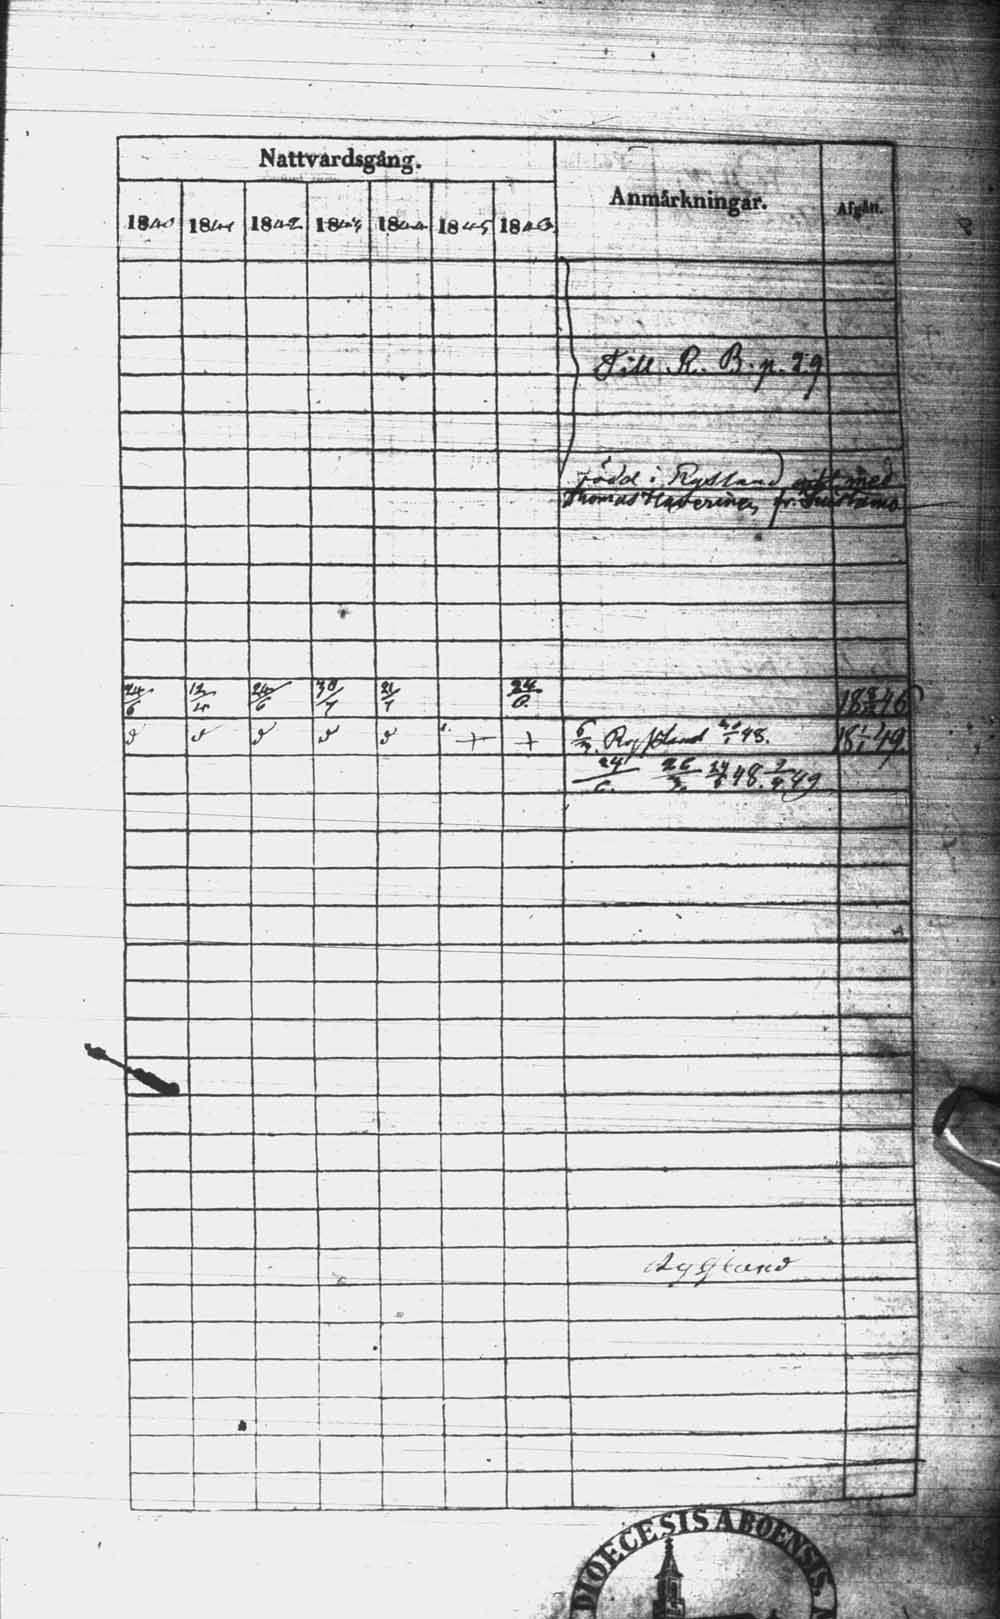 Nattvardsgång.
Anmärkningar.
Afgått.
1840 1841 1842 1843 1844 1845 1846
Till R. B. p. 29
född i Ryssland gift med
Thomas Haverinen fr.
24/6 12/4 24/6 30/7 21/7 24/6 18 46
+ + 6/3 Ryssland 48. 18 49
24/6 26/3 24/6 48. 2/4 49
Ryssland
DIOECESIS ABOENSIS.